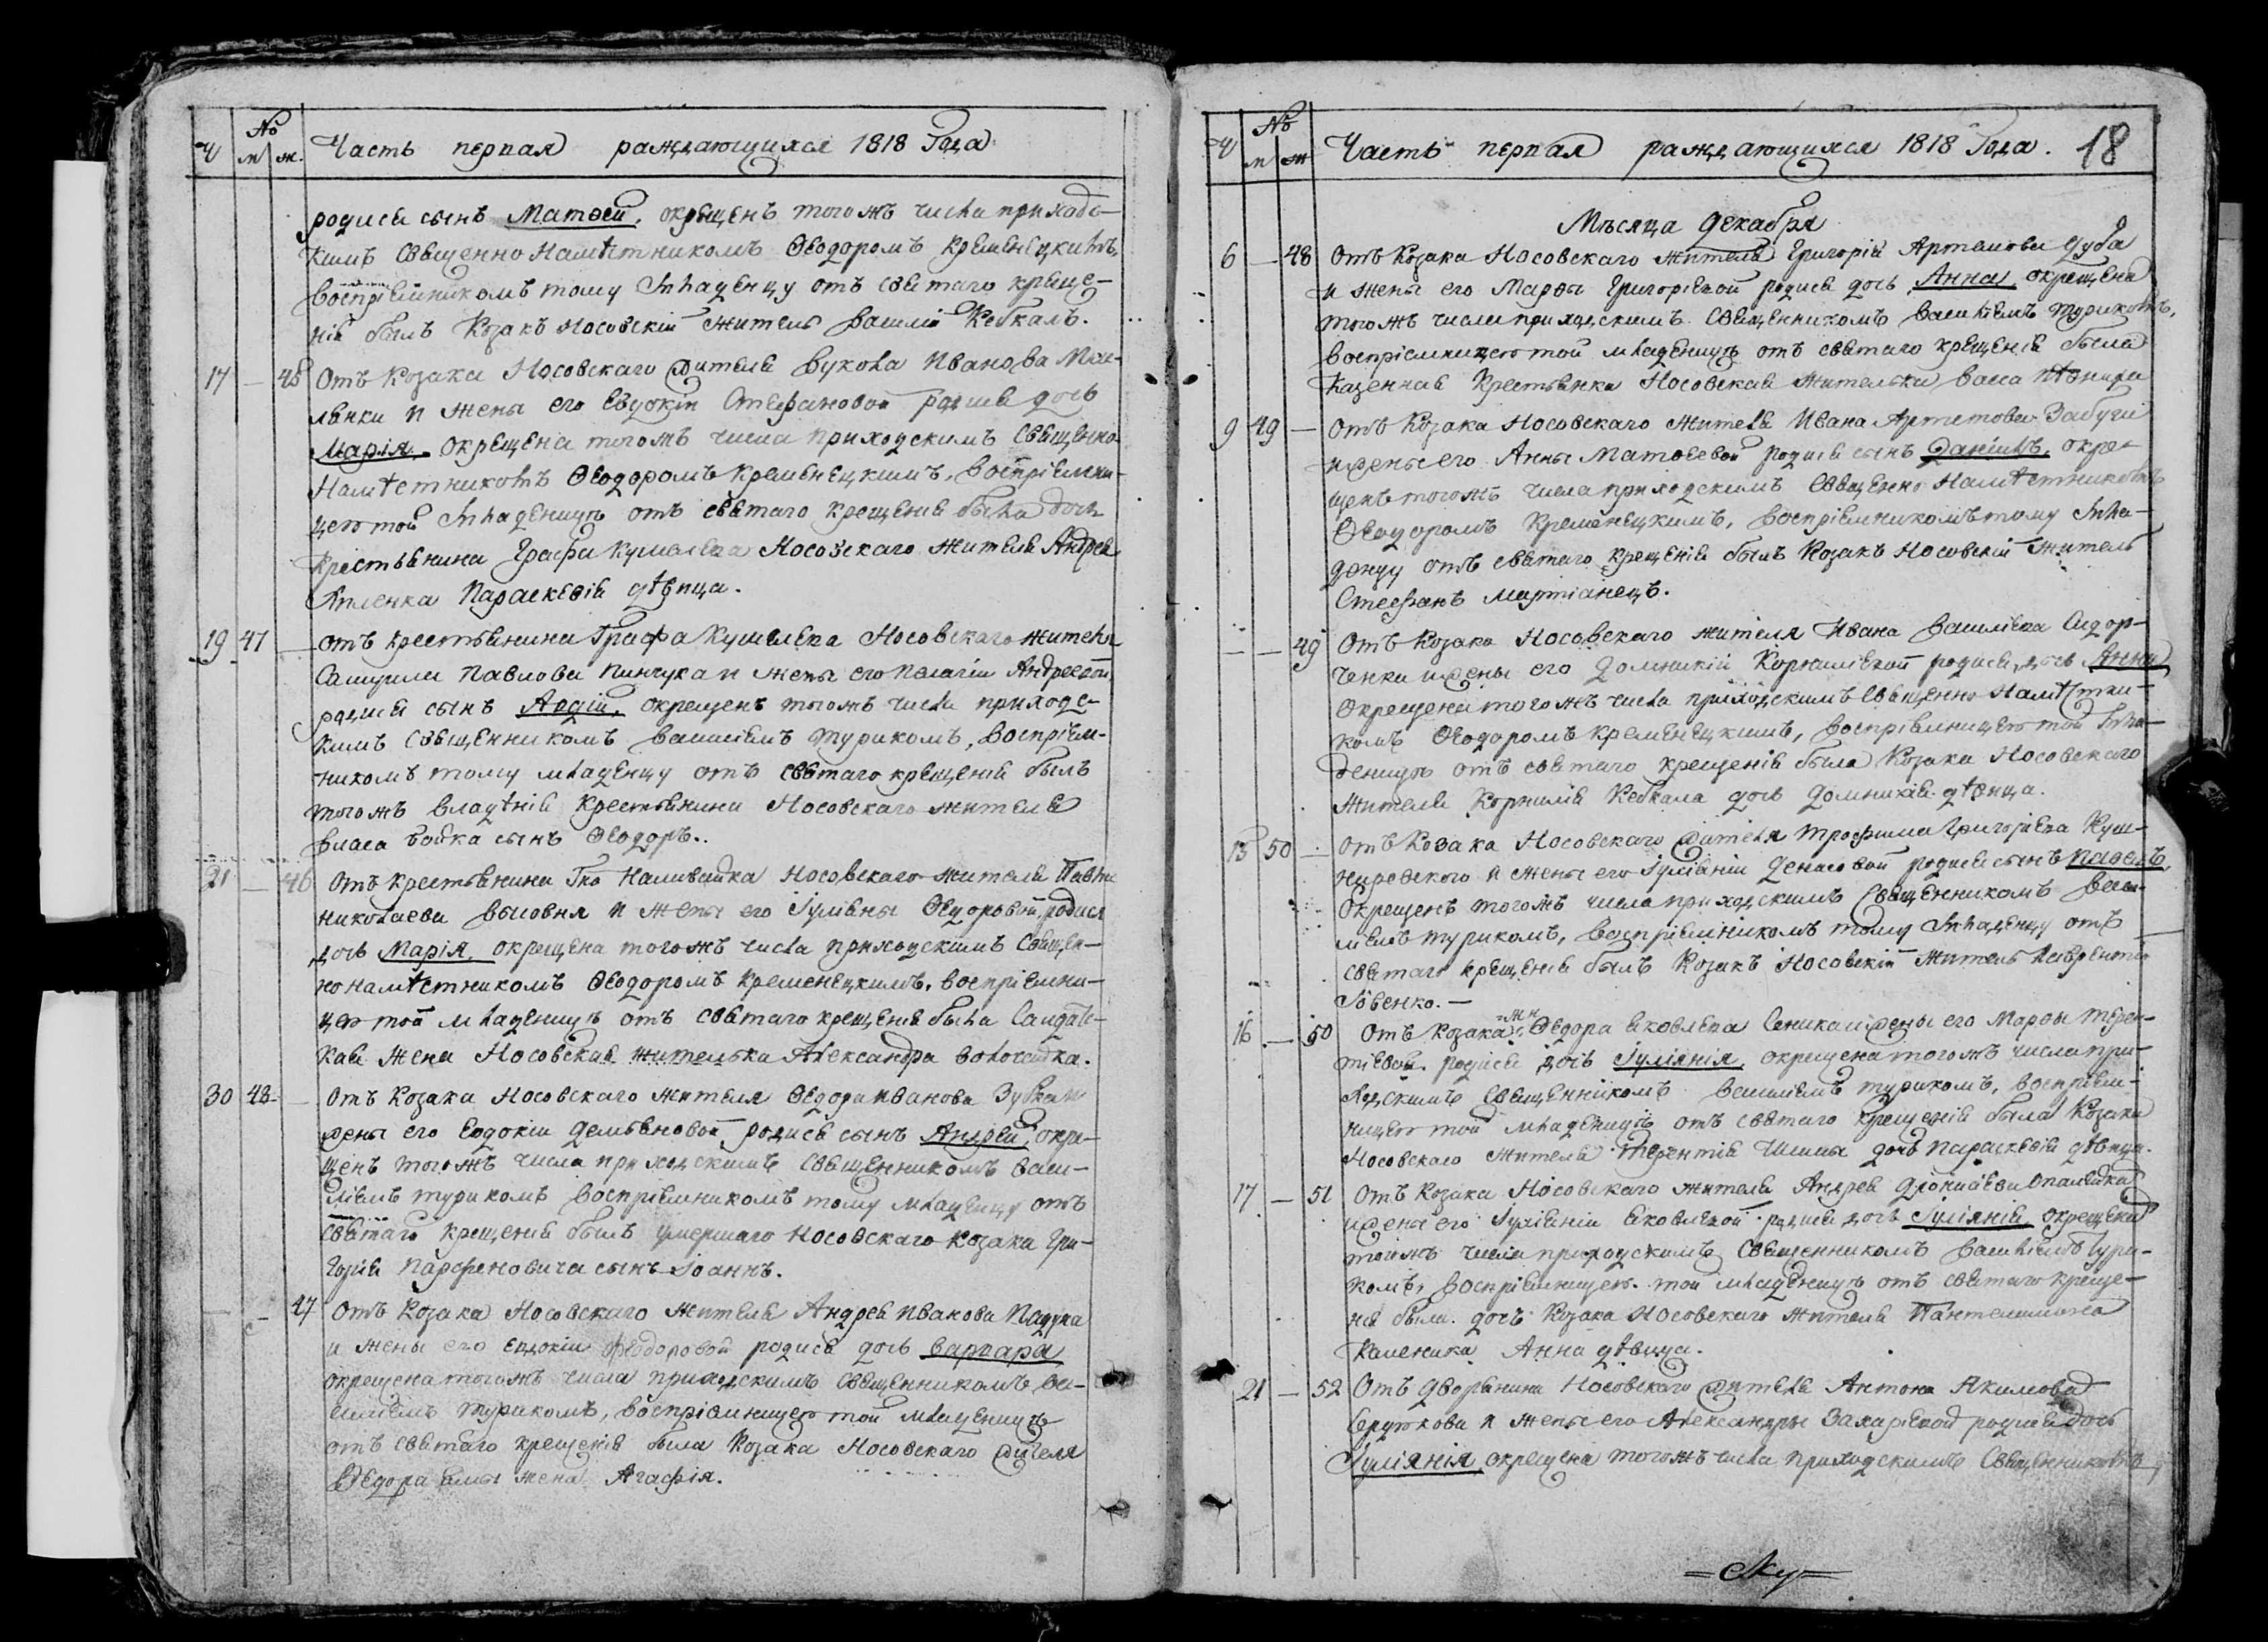 Ч № м ж. Часть первая раждающихся 1818 Года.
родися сынъ Матѳей, окрещенъ тогожъ числа приходс-
кимъ Священно Намѣстникомъ Ѳеодоромъ Кременецкимъ,
Воспріемникомъ тому Младенцу отъ святаго креще-
нія былъ Козакъ Носовскій житель Василій Кебкалъ.
17 — 45 Отъ Козака Носовскаго жителя Вукола Иванова Ма-
лянки и жены его Евдокіи Стефановой родися дочь
Марія, окрещена тогожъ числа приходскимъ Священно
Намѣстникомъ Ѳеодоромъ Кременецкимъ, Воспріемни-
цею той Младеницѣ отъ святаго крещенія была дочь
крестьянина Графа Кушелева Носовскаго жителя Андрея
Параскевія дѣвица.
19 47 — отъ крестьянина Графа Кушелева Носовскаго жителя
Самуила Павлова Пинчука и жены его Пелагіи Андреевой
родися сынъ Авдій, окрещенъ тогожъ числа приходс-
кимъ священникомъ Василіемъ Турикомъ, Воспріем-
никомъ тому младенцу отъ святаго крещенія былъ
тогожъ владѣнія крестьянина Носовскаго жителя
Власа Бойка сынъ Ѳеодоръ..
21 — 46 Отъ крестьянина Гна Наливайка Носовскаго жителя Павла
Николаева и жены его Іуліаны Ѳедоровой, родися
дочь Марія, окрещена тогожъ числа приходскимъ Священ-
но намѣстникомъ Ѳеодоромъ Кременецкимъ, воспріемни-
цею той младеницѣ отъ святаго крещенія была Салдатс-
кая жена Носовская жителька Александра
30 48 — Отъ Козака Носовскаго жителя Ѳедора Иванова Зубка и
жены его Евдокіи Демьяновой родися сынъ Андрей, окре-
щенъ тогожъ числа приходскимъ священникомъ Васи-
ліемъ Турикомъ Воспріемникомъ тому младенцу отъ
святаго крещенія былъ умершаго Носовскаго козака Гри-
горія Парфеновича сынъ Іоаннъ.
— — 47 Отъ Козака Носовскаго жителя Андрея Иванова
и жены его Евдокіи Ѳеодоровой родися дочь Варвара
окрещена тогожъ числа приходскимъ священникомъ Ва-
силіемъ Турикомъ, Воспріемницею той младеницѣ
отъ святаго крещенія была Козака Носовскаго жителя
Ѳедора жена Агафія.
Ч № м ж Часть первая раждающихся 1818 Года. 18
Мѣсяца Декабря
6 — 48 Отъ Козака Носовскаго жителя Григорія Артемова Дуба
и жены его Марѳы Григоріевой родися дочь Анна, окрещена
тогожъ числа приходскимъ Священникомъ Василіемъ Турикомъ,
воспріемницею той младеницѣ отъ святаго крещенія была
Казенная Крестьянка Носовская жителька Васса
9 49 — Отъ Козака Носовскаго жителя Ивана Забуги
и жены его Анны Матѳеевой родися сынъ Даніилъ, окре-
щенъ тогожъ числа приходскимъ Священно Намѣстникомъ
Ѳеодоромъ Кременецкимъ, воспріемникомъ тому Мла-
денцу отъ святаго крещенія былъ Козакъ Носовскій житель
Стефанъ Мартіанецъ.
— — 49 Отъ Козака Носовскаго жителя Ивана Василіева Сидор-
ченка и жены его Домникіи Корниліевой родися дочь Анна
Окрещена тогожъ числа приходскимъ Священно Намѣстни-
комъ Ѳеодоромъ Кременецкимъ, Воспріемницею той Мла-
деницѣ отъ святаго крещенія была Козака Носовскаго
жителя Корнилія Кебкала дочь Домникія дѣвица.
15 50 — Отъ Козака Носовскаго жителя Трофима Григоріева Куш-
неревского и жены его Іуліаніи Денисовой родися сынъ Павелъ,
Окрещенъ тогожъ числа приходскимъ Священникомъ Васи-
ліемъ Турикомъ, Воспріемникомъ тому Младенцу отъ
святаго крещенія былъ Козакъ Носовскій житель Лаврентій
16 — 50 Отъ Козака Ѳедора Яковлева и жены его Марѳы Терен-
тіевой родися дочь Іуліанія, окрещена тогожъ числа при-
ходскимъ Священникомъ Василіемъ Турикомъ, воспріем-
ницею той младеницѣ отъ святаго крещенія была Козака
Носовскаго жителя Терентія дочь Параскевія дѣвица.
17 — 51 Отъ Козака Носовскаго жителя Андрея
и жены его Іуліаніи Яковлевой родися дочь Іуліанія, окрещена
тогожъ числа приходскимъ Священникомъ Василіемъ Тури-
комъ, Воспріемницею той младеницѣ отъ святаго креще-
нія была дочь Козака Носовскаго жителя Пантелимона
Каменика Анна дѣвица.
21 — 52 Отъ Дворянина Носовскаго жителя Антона Якимова
и жены его Александры Захаріевой родися дочь
Іуліанія, окрещена тогожъ числа приходскимъ Священникомъ